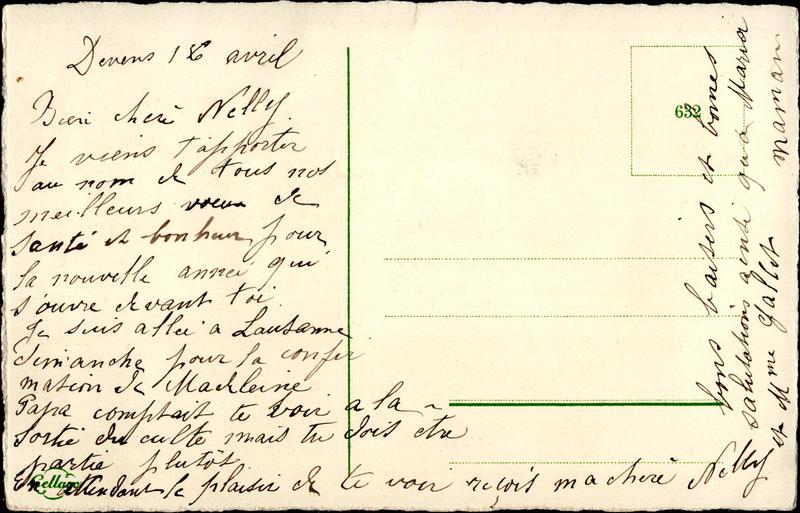 Devens 18 avril
Bien chère Nelly.
Je viens t'apporter
au nom de tous nos
meilleurs voeux de
santé et bonheur pour
la nouvelle année qui
s'ouvre devant toi.
Je suis allée a Lausanne
dimanche pour la confir
mation de Madeleine
Papa comptait te voir a la
sortie du culte mais tu dois être
partie plutôt
En attendant le plaisir de te voir reçois ma chère Nelly
bons baisers et bonnes
salutations ainsi qu'a Maria
et Mme Gallet
maman
632
Cellaro